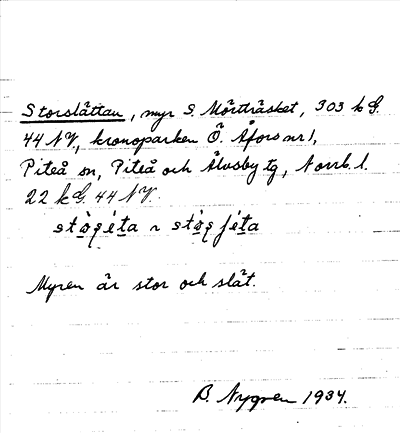 Storslåttan, myr S. Mörtträsket, 303 k G.
44 NV., kronoparken Ö. Åfors nr 1,
Piteå sn, Piteå och Älvsby tg, Norrb. l.
22 k G. 44 NV.
Myren är stor och slät.
B. Nygren 1934.